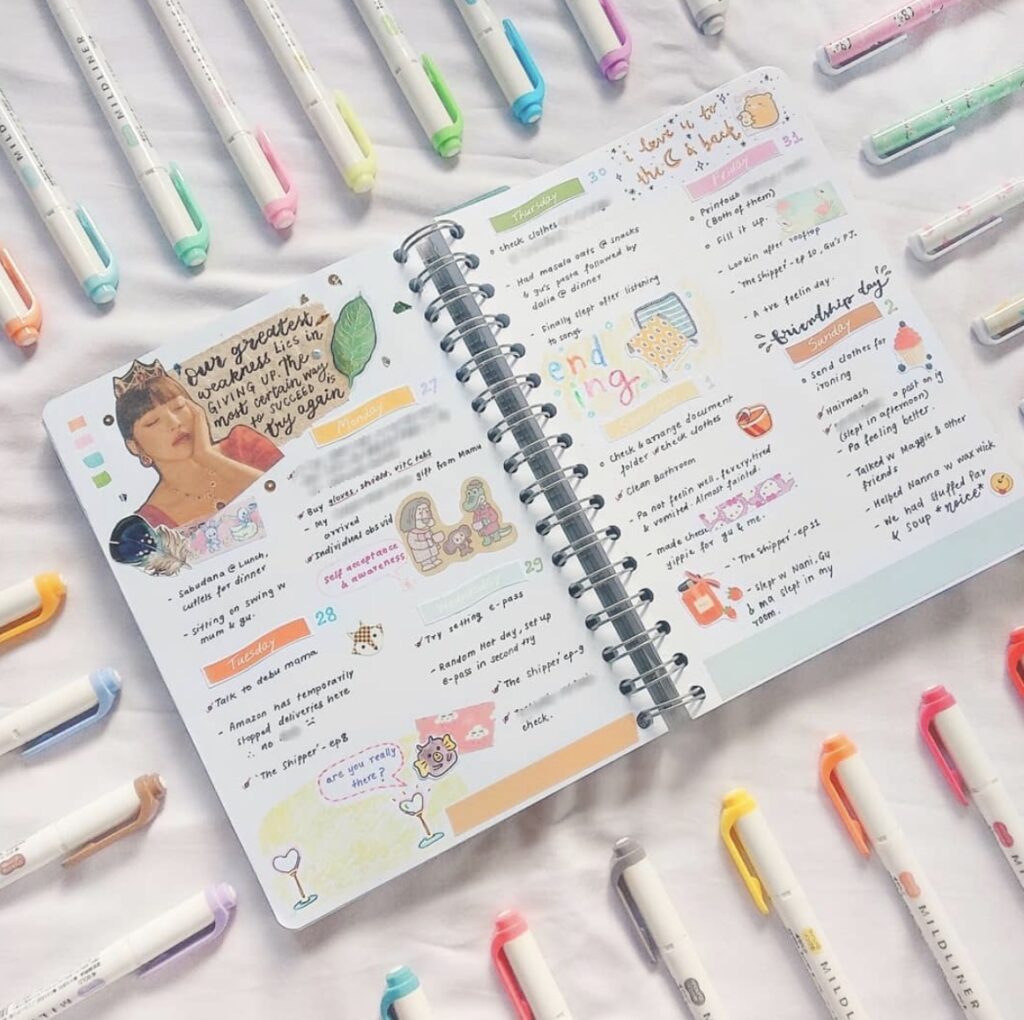 our greatest
weakness lies in
GIVING UP. The
most certain way
to SUCCEED is
try again
Monday
27
Buy gloves, shield, vitC tabs
My
gift from Mamu
arrived
Individual obsvid
self acceptance
& awareness
- Sabudana @ Lunch,
cutlets for dinner
- sitting on swing w
mum & gu.
Tuesday
28
Talk to debu mama
- Amazon has temporarily
stopped deliveries here
∴ no
'The Shipper' - ep8
are you really
there?
Wednesday
29
Try setting e-pass
- Random Hot day, set up
e-pass in second try
'The Shipper' ep-9
check.
Thursday
30
check clothes
- Had masala oats @ snacks
& gu's pasta followed by
dalia @ dinner
- Finally slept after listening
to songs
end
ing
1
check & arrange document
folder check clothes
Clean Bathroom
- Pa not feelin well, fever, tired
& vomited. Almost fainted.
- made cheese
yippie for gu & me.
- 'The Shipper' - ep11
- slept w Nani. Gu
& ma slept in my
room.
i love u to
the & back
Friday
31
Printous
(Both of them)
Fill it up.
- Lookin after rooftop
- 'The Shipper' - ep 10, Gu's PJ.
- A +ve feelin day.
friendship day
Sunday
2
send clothes for
ironing
Hairwash
post on ig
(slept in afternoon)
- Pa feeling better.
- Talked w Maggie & other
friends
- Helped Nanna w wax wick
- We had stuffed Par
& soup * noice *
MILDLINER
MILDLINER
MILDLINER
MILDLINER